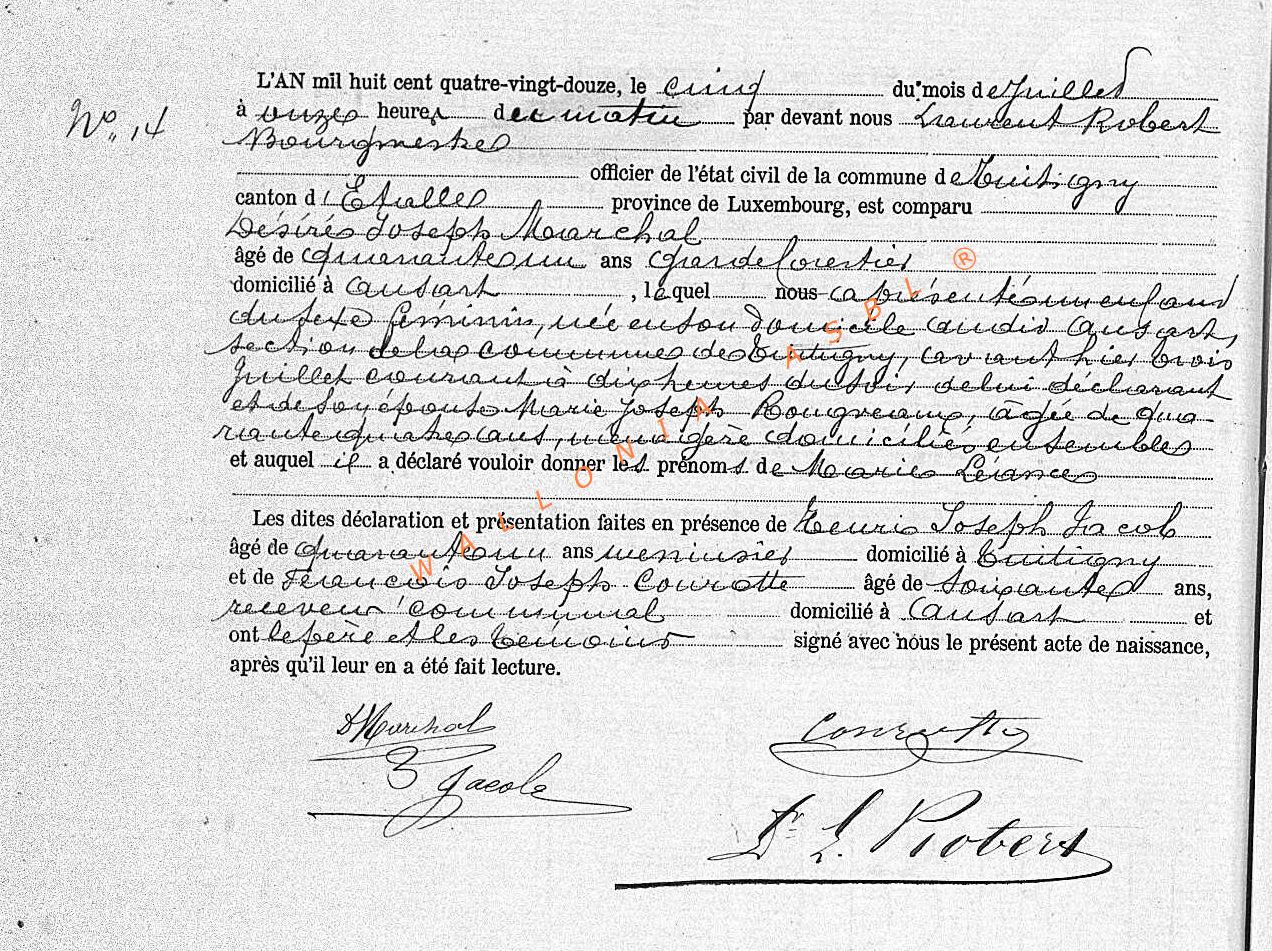 L'AN mil huit cent quatre-vingt-douze, le cinq du mois de Juillet
No. 14
à onze heures du matin par devant nous Laurent Robert
Bourgmestre
officier de l'état civil de la commune de Tintigny
canton d'Etalle province de Luxembourg, est comparu
Désiré Joseph Marchal
âgé de quarante un ans garde forestier
domicilié à Ansart, lequel nous a présenté un enfant
du sexe féminin, née en son domicile audit Ansart,
section de la commune de Tintigny, avant hier trois
Juillet courant à dix heures du soir, de lui déclarant
et de son épouse Marie Joseph âgée de qua-
rante quatre ans, ménagère domiciliés ensemble
et auquel il a déclaré vouloir donner les prénoms de Marie
Les dites déclaration et présentation faites en présence de Henri Joseph Jacob
âgé de quarante un ans menuisier domicilié à Tintigny
et de François Joseph Conrotte âgé de soixante ans,
receveur communal domicilié à Ansart et
ont le père et les témoins signé avec nous le présent acte de naissance,
après qu'il leur en a été fait lecture.
D Marchal Conrotte
Jacob
Dr L. Robert
WALLONIA ASBL ®